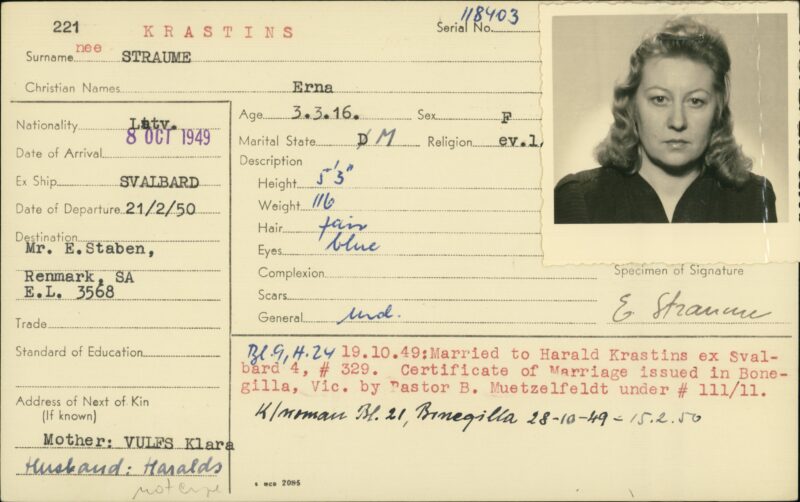 221 KRASTINS Serial No. 118403
nee
Surname STRAUME
Christian Names Erna
Nationality Latv.
Age 3.3.16. Sex F
8 OCT 1949
Date of Arrival
Marital State D M Religion ev.l.
Description
Ex Ship SVALBARD
Height 5'3"
Date of Departure 21/2/50
Weight 116
Hair fair
Destination
Mr. E.Staben,
Eyes blue
Renmark, SA
E.L. 3568
Complexion
Specimen of Signature
Scars
General
E Straume
Trade
Standard of Education
Bl.9, H.24 19.10.49:Married to Harald Krastins ex Sval-
bard 4, # 329. Certificate of Marriage issued in Bone-
gilla, Vic. by Pastor B. Muetzelfeldt under # 111/11.
Address of Next of Kin
(If known)
K/woman Bl. 21, Bonegilla 28-10-49 - 15.2.50
Mother: VULFS Klara
Husband: Haralds
S MCD 2085